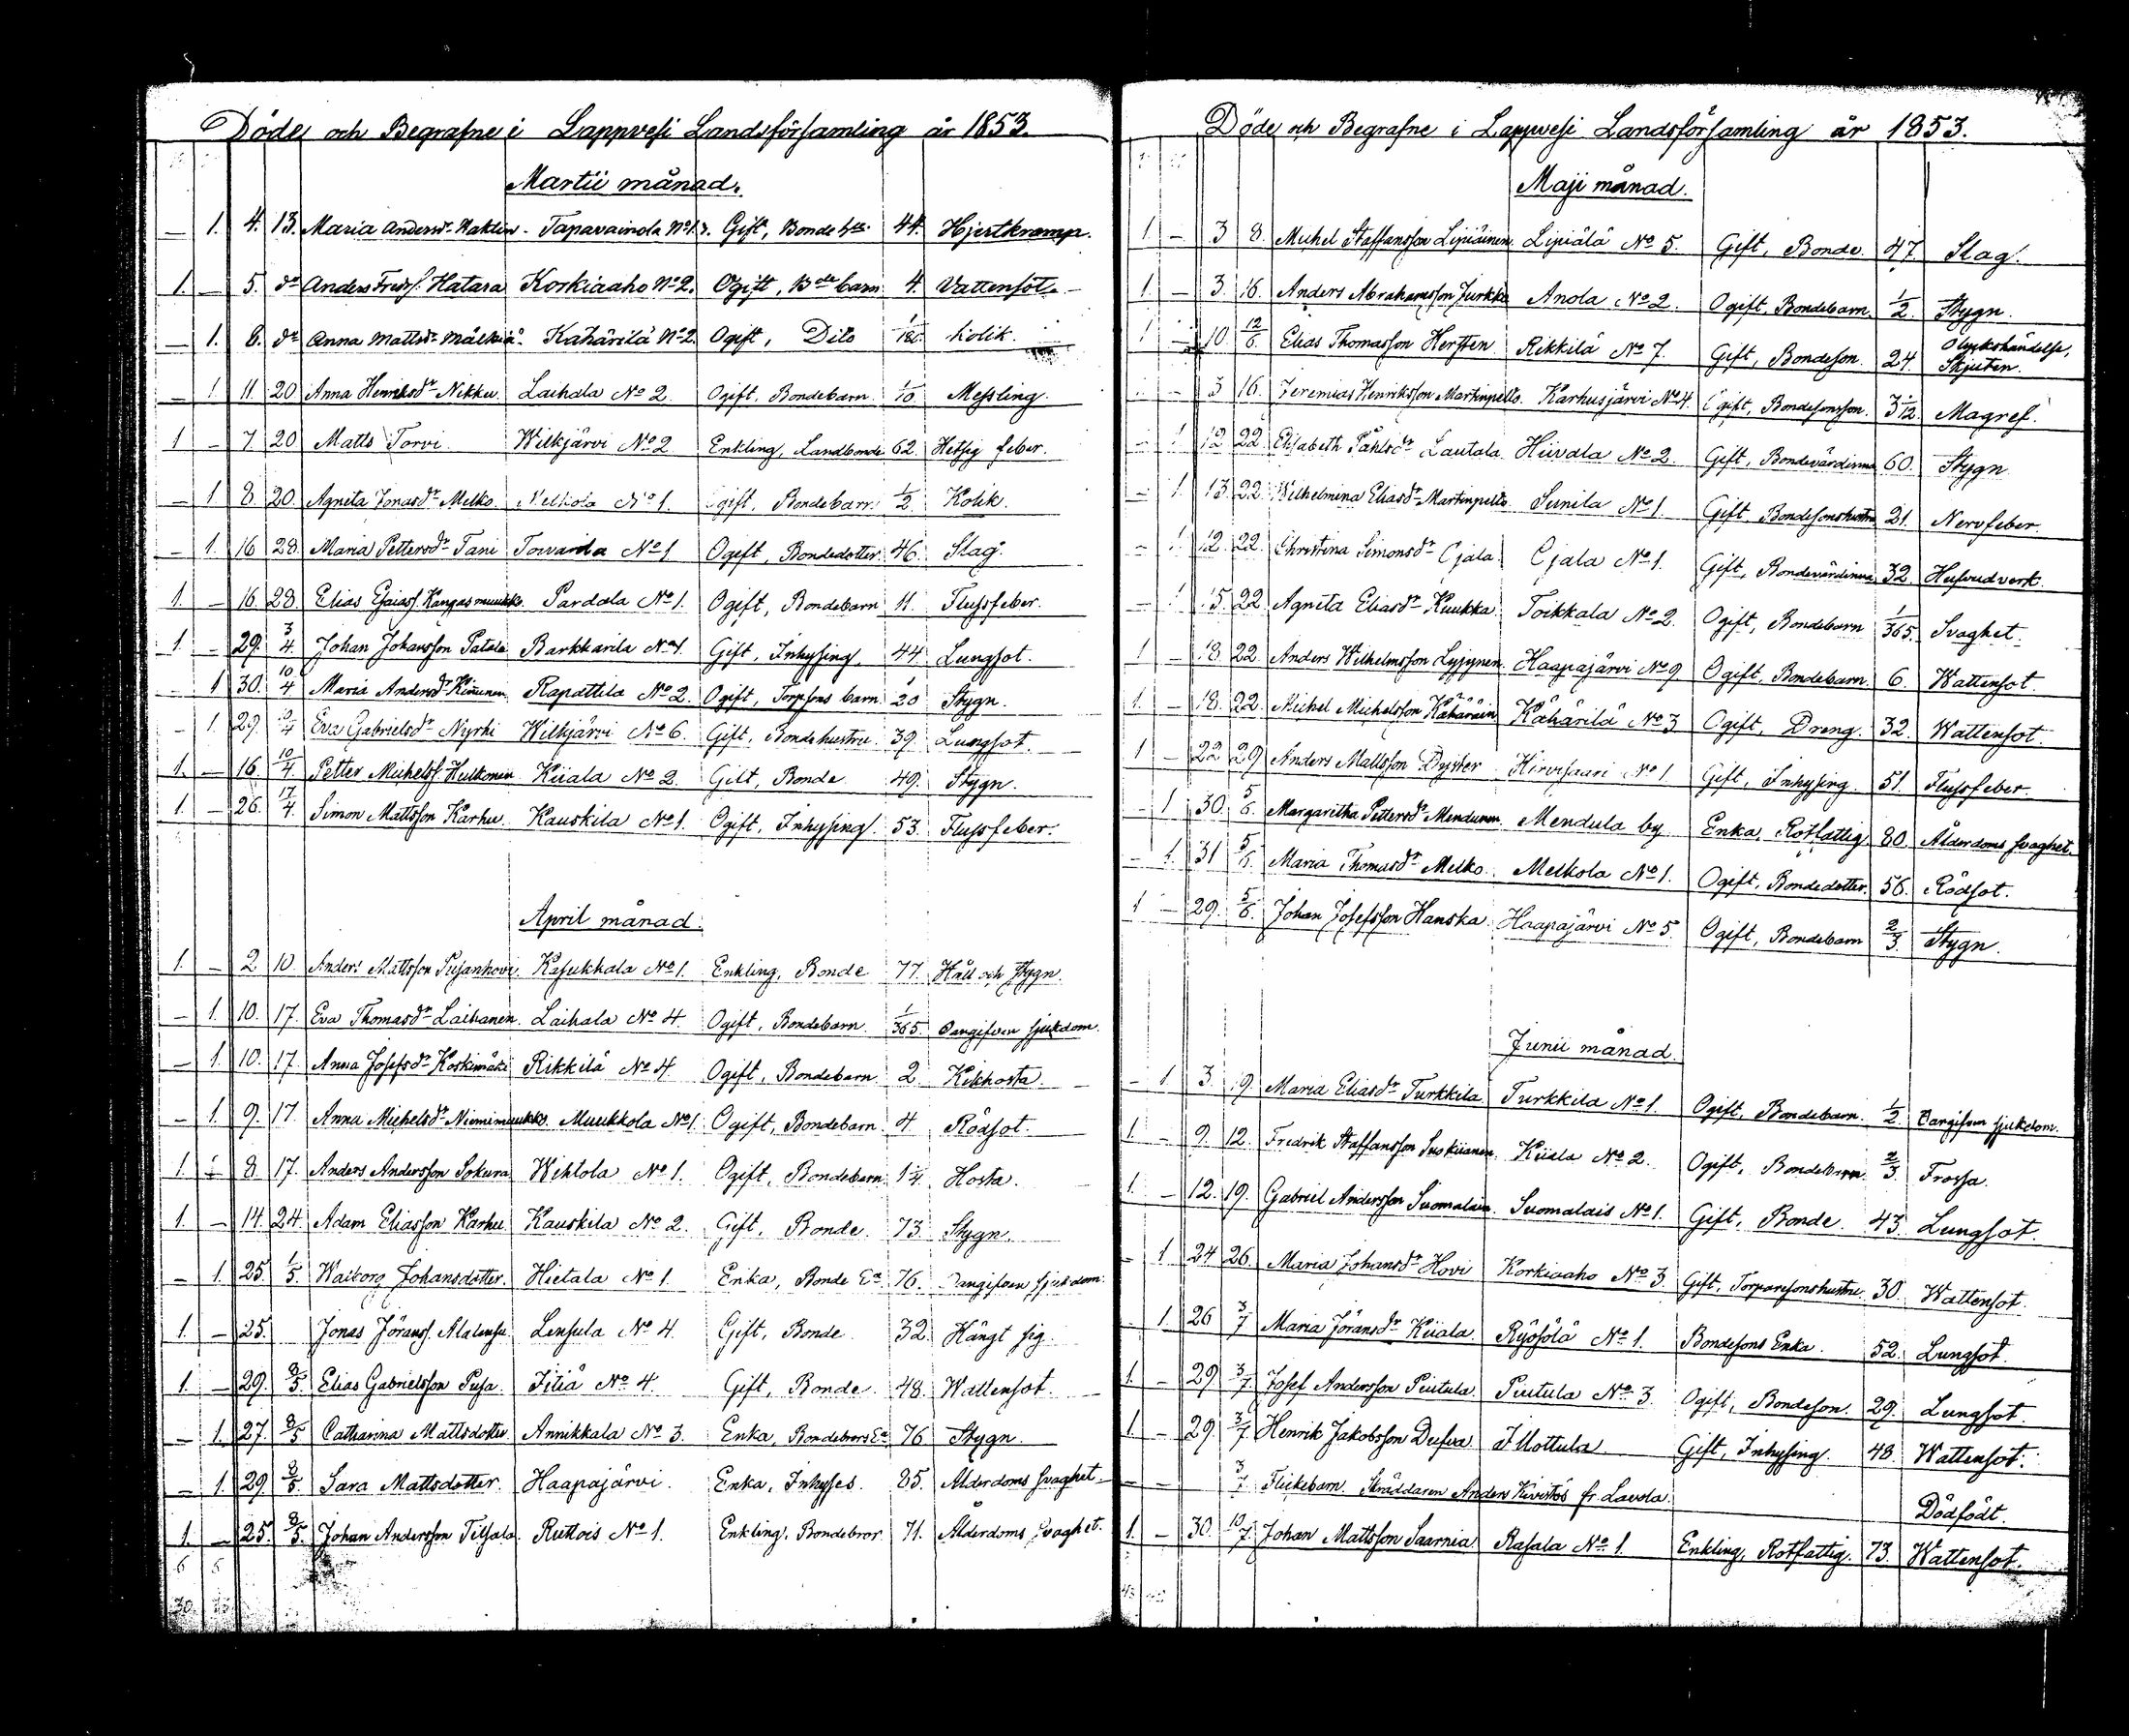 Döde och Begrafne i Lappvesi Landsförsamling år 1853.
Martii månad.
— 1. 4. 13. Maria Andersdr Raktin Tapavainola No 1. Gift, Bonde hu 44. Hjertkramp.
1. — 5. do Anders Fredss. Hatara Korkiaaho No 2. Ogift, Bde barn 4. Vattensot.
— 1. 8. do Anna Mattsdr Mälkiä Kähärilä No 2. Ogift, Dito Kolik.
— 1. 11. 20 Anna Henriksdr Nikku. Laihala No 2. Ogift, Bondebarn. 1/10 Messling.
1 — 7. 20 Matts Torvi. Wilkjärvi No 2 Enkling, Landbonde 62. Hetsig feber.
— 1 8. 20. Agneta Jonasdr Melko. Melkola No 1. Ogift, Bondebarn. 1/2 Kolik.
— 1. 16 28. Maria Pettersdr Tani Torvarila No 1 Ogift, Bondedotter. 46. Slag.
1. — 16. 28. Elias Esaiass. Kangasmuukko. Pardala No 1. Ogift, Bondebarn 11. Flussfeber.
1. — 29. 3/4. Johan Johansson Patala Karkkarila No 1. Gift, Inhysing. 44. Lungsot.
— 1 30. 10/4 Maria Andersdr Kinnunen Rapattila No 2. Ogift, Torpsons barn. 1/20 Stygn.
— 1. 29. 10/4 Eva Gabrielsdr Nyrhi Wilkjärvi No 6. Gift, Bondehustru. 39. Lungsot.
1. — 16. 10/4. Petter Michelss. Hulkonen Kiiala No 2. Gift, Bonde 49. Stygn.
1. — 26. 17/4. Simon Mattsson Karhu. Kauskila No 1. Ogift, Inhysing. 53. Flussfeber.
April månad.
1. — 2 10. Anders Mattsson Pusanhovi. Kasukkala No 1. Enkling, Bonde 77. Håll och Stygn.
— 1. 10. 17. Eva Thomasdr Laihanen. Laihala No 4. Ogift, Bondebarn. 1/365. Oangifven sjukdom.
— 1. 10. 17. Anna Josefsdr Koskimäki Rikkilä No 4 Ogift, Bondebarn. 2. Kikhosta.
— 1. 9. 17. Anna Michelsdr Niemimuukko. Muukkola No 1. Ogift, Bondebarn. 4 Rödsot.
1. — 8. 17. Anders Andersson Sokura Wihtola No 1. Ogift, Bondebarn. 1 1/4. Hosta.
1. — 14. 24. Adam Eliasson Karhu. Kauskila No 2. Gift, Bonde. 73. Stygn.
— 1. 25. 1/5. Walborg Johansdotter. Hietala No 1. Enka, Bonde Ea 76. Oangifven sjukdom.
1. — 25. Jonas Jöranss. Alalensu. Lensula No 4. Gift, Bonde. 32. Hängt sig.
1. — 29. 8/5. Elias Gabrielsson Pusa. Iitiä No 4. Gift, Bonde. 48. Wattensot.
— 1. 27. 8/5 Catharina Mattsdotter. Annikkala No 3. Enka, Bondebrors Ea 76 Stygn.
— 1. 29 8/5. Sara Mattsdotter. Haapajärvi. Enka, Inhyses. 85. Ålderdoms svaghet.
1. — 25. 8/5. Johan Andersson Tilsala. Ruttois No 1. Enkling, Bondebror. 71. Ålderdoms svaghet.
6 8
30
Döde och Begrafne i Lappvesi Landsförsamling år 1853.
Maji månad.
1. — 3 8. Michel Staffansson Lipiäinen. Lipiälä No 5. Gift, Bonde. 47. Slag.
1. — 3. 16. Anders Abrahamsson Jurkko Anola No 2. Ogift, Bondebarn. 1/2. Stygn.
1 — 10. 12/6. Elias Thomasson Hersten Rikkilä No 7. Gift, Bondeson. 24. Olyckshändelse, Skjuten.
— 3 16. Jeremias Henriksson Martinpelto. Karhusjärvi No 4. Ogift, Bondesonsson. 3/12. Magref.
— 1 12 22. Elisabeth Påhlsdr Lautala. Hiivala No 2. Gift, Bondevärdinna 60. Stygn.
— 1. 13. 22. Wilhelmina Eliasdr Martinpelto. Sunila No 1. Gift, Bondesonshustru 21. Nervfeber.
— 1. 12. 22. Christina Simonsdr Ojala. Ojala No 1. Gift, Bondevärdinna. 32. Hufvudverk.
— 1 15. 22. Agneta Eliasdr Kuukka. Toikkala No 2. Ogift, Bondebarn 1/365. Svaghet.
1 — 18. 22. Anders Wilhelmsson Lyjynen. Haapajärvi No 9 Ogift, Bondebarn. 6. Wattensot.
1. — 18. 22. Michel Michelsson Kähäräin Kähärilä No 3 Ogift, Dreng. 32. Wattensot.
1 — 22 29. Anders Mattsson Dyster Hirvisaari No 1 Gift, Inhysing. 51. Flussfeber.
— 1 30. 5/6. Margaretha Pettersdr Mendunen. Mendula by Enka, Rotfattig. 80. Ålderdoms svaghet.
— 1. 31 5/6. Maria Thomasdr Melko. Melkola No 1. Ogift, Bondedotter. 56. Rödsot.
1 — 29. 5/6. Johan Josefsson Hanska. Haapajärvi No 5 Ogift, Bondebarn 2/3. Stygn.
Junii månad.
— 1. 3. 19. Maria Eliasdr Turkkila Turkkila No 1. Ogift, Bondebarn. 1/2. Oangifven sjukdom.
1. — 9. 12. Fredrik Staffansson Suskiianen. Kiiala No 2. Ogift, Bondebarn. 2/3. Frossa.
1. — 12. 19. Gabriel Andersson Suomalain. Suomalais No 1. Gift, Bonde. 43. Lungsot.
— 1 24 26. Maria Johansdr Hovi Korkiaaho No 3 Gift, Torparesonshustru. 30. Wattensot.
— 1. 26 3/7 Maria Jöransdr Kiiala. Ryösölä No 1. Bondesons Enka. 52. Lungsot.
1. — 29 3/7. Josef Andersson Piutula. Piutula No 3. Ogift, Bondeson. 29. Lungsot.
1. — 29. 3/7. Henrik Jakobsson Dufva. Ilottula Gift, Inhysing. 48. Wattensot.
— — 3/7 Flickebarn. Skräddaren Anders Kivistös fr. Lavola. Dödfödt.
1. — 30. 10/7. Johan Mattsson Saarnia. Rasala No 1. Enkling, Rotfattig. 73. Wattensot.